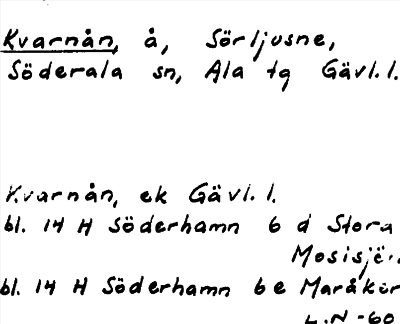 Kvarnån, å, Sörljusne,
Söderala sn, Ala tg Gävl.l.
Kvarnån, ek Gävl.l.
bl. 14 H Söderhamn 6 d Stora
bl. 14 H Söderhamn 6e
L.N -60